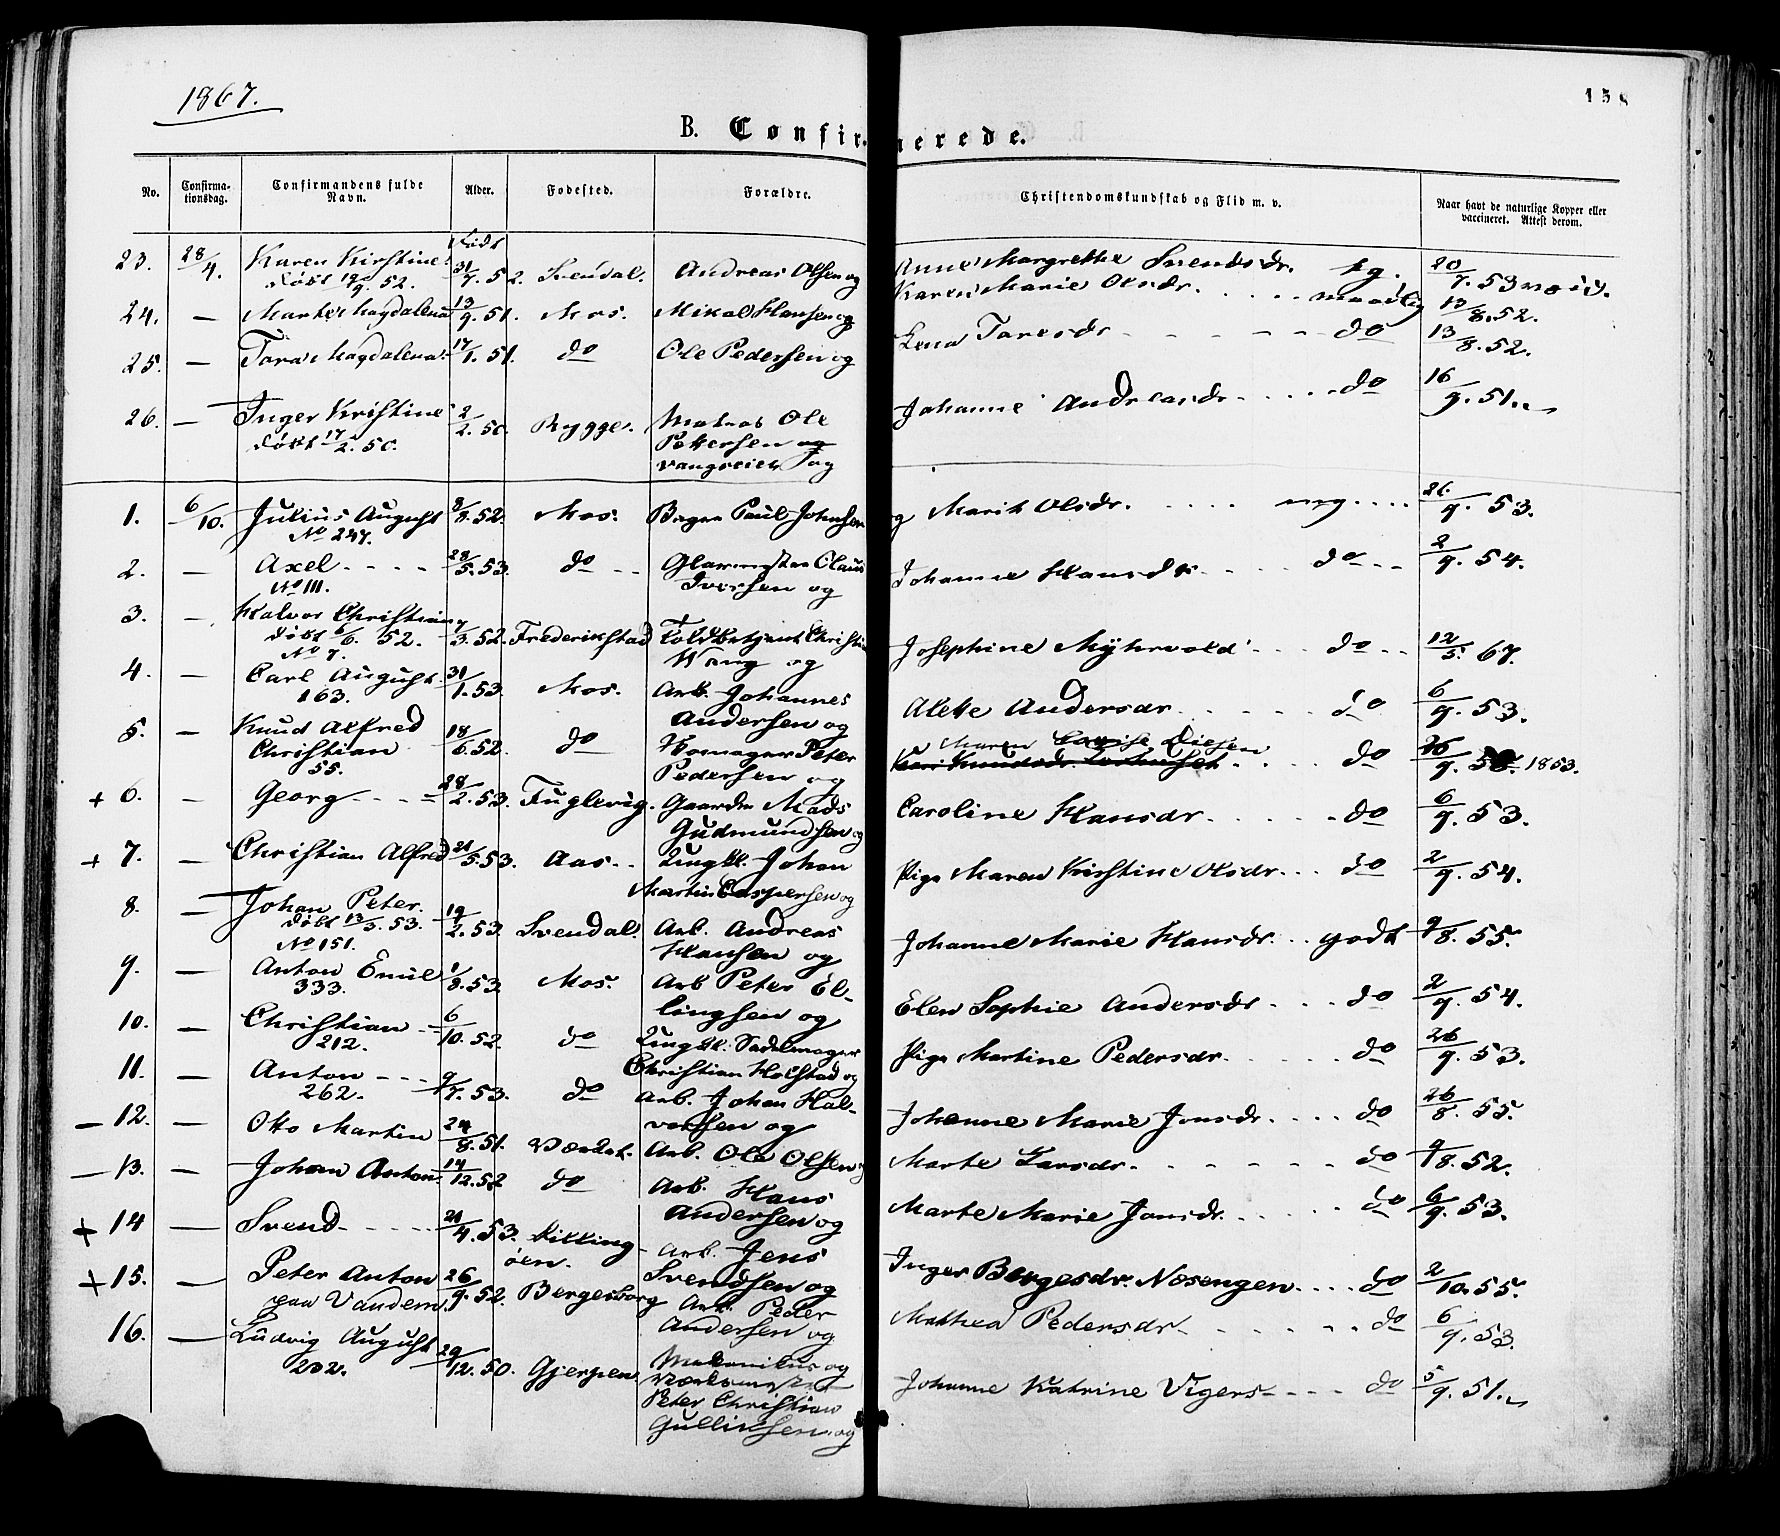 1867.
158
B. Confirmerede.
No. Confirmationsdag. Confirmandens fulde Navn. Alder. Fødested. Forældre. Christendomskundskab og Flid m. v. Naar havt de naturlige Kopper eller vaccineret. Attest derom.
23. 28/4. Karen Kirstine født 31/7. 52. Svendal. Andreas Olsen og Anne Margrethe Svendsdr. tg. 20/7. 53
døbt 19/9. 52.
24. — Marte Magdalena 13/9. 51. Mos. Mikal Hansen og Karen Marie Olsdr. . . . . maadlig 17/8. 52.
25. — Tara Magdalena 17/1. 51. do Ole Pedersen og Lena Taresdr - - - - do 13/8. 52.
26. — Inger Kristine 2/2. 50. Rygge. Matros Ole Johanne Andreasdr . . . . do 16/9. 51.
døbt 17/2. 50. Petersen og
1. 6/10. Julius August 8/8. 52. Mos. Bager Paul Johnsen og Marit Olsdr. . . . . mg . . . . 26/9. 53.
No 247.
2. — Axel - - - - 28/5. 53. do - - Glarmester Claus Johanne Hansdr . . . . do - - 2/9. 54.
No 111. Iversen og
3. — Halvor Christian 7/3. 52. Frederikstad Toldbetjent Christian Josephine Myhrvold . . do - - 12/5. 67.
døbt 6/6. 52. Wang og
No 7.
4. — Carl August 31/1. 53. Mos. Arb. Johannes Alette Andersdr . . . . do 6/9. 53.
163. Andersen og
5. — Knud Alfred 18/6. 52. do Peter Maren Lovise Diesen . . . . do 26/9. 1853.
Christian Pedersen og
55.
+ 6. — Georg - - - 28/2. 53. Fuglevig. Gaardm Mads Caroline Hansdr . . . . do 6/9. 53.
Gudmundsen og
+ 7. — Christian Alfred 21/5. 53. Aas. - Ungkl. Johan Pige Maren Kristine Olsdr . . . do 2/9. 54.
Martin Caspersen og
8. — Johan Peter 19/2. 53. Svendal. Arb. Andreas Johanne Marie Hansdr. . . godt 9/8. 55.
døbt 13/5. 53. Hansen og
No 151.
9. — Anton Emil 1/8. 53. Mos. Arb Peter El- Elen Sophie Andersdr . . . do 2/9. 54.
333. lingsen og
10. — Christian - - 6/10. 52. do Ungkl. Sadelmager Pige Martine Pedersdr . . . . do 26/9. 53.
212. Christian Holstad og
11. — Anton - - - 9/7. 53. do Arb. Johan Hal- Johanne Marie Jonsdr . . . . do 26/8. 55.
262. vorsen og
— 12. — Otto Martin 24/8. 51. Værket. Arb. Ole Olsen og Marte Larsdr. - - - - do 9/8. 52.
— 13. — Johan Anton 14/12. 52 do Arb. Hans Marte Marie Jonsdr . . . . do 6/9. 53.
Andersen og
+ 14 — Svend - - - - 21/4. 53. Dilling- Arb. Jens Inger Bergesdr. Nosengen . . . . do 2/10. 55.
øen. Svendsen og
+ 15. — Peter Anton 26/9. 52. Bergersborg Arb. Peder Mathea Pedersdr - - - - do 6/9. 53.
paa Vandem. Andersen og
16. — Ludvig August 29/12. 50. Gjerpen. Mekanikus og Johanne Katrine Vigers - - - do 5/9. 51.
202. Værksmester
Peter Christian
Gulliksen og